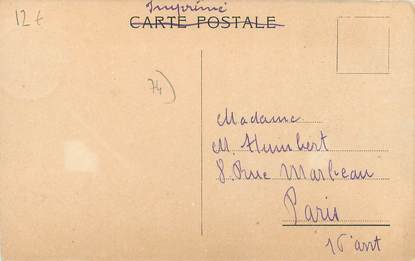 12€
Imprimé
CARTE POSTALE
74)
Madame
M. Humbert
8. Rue Marbeau
Paris
16 arrt